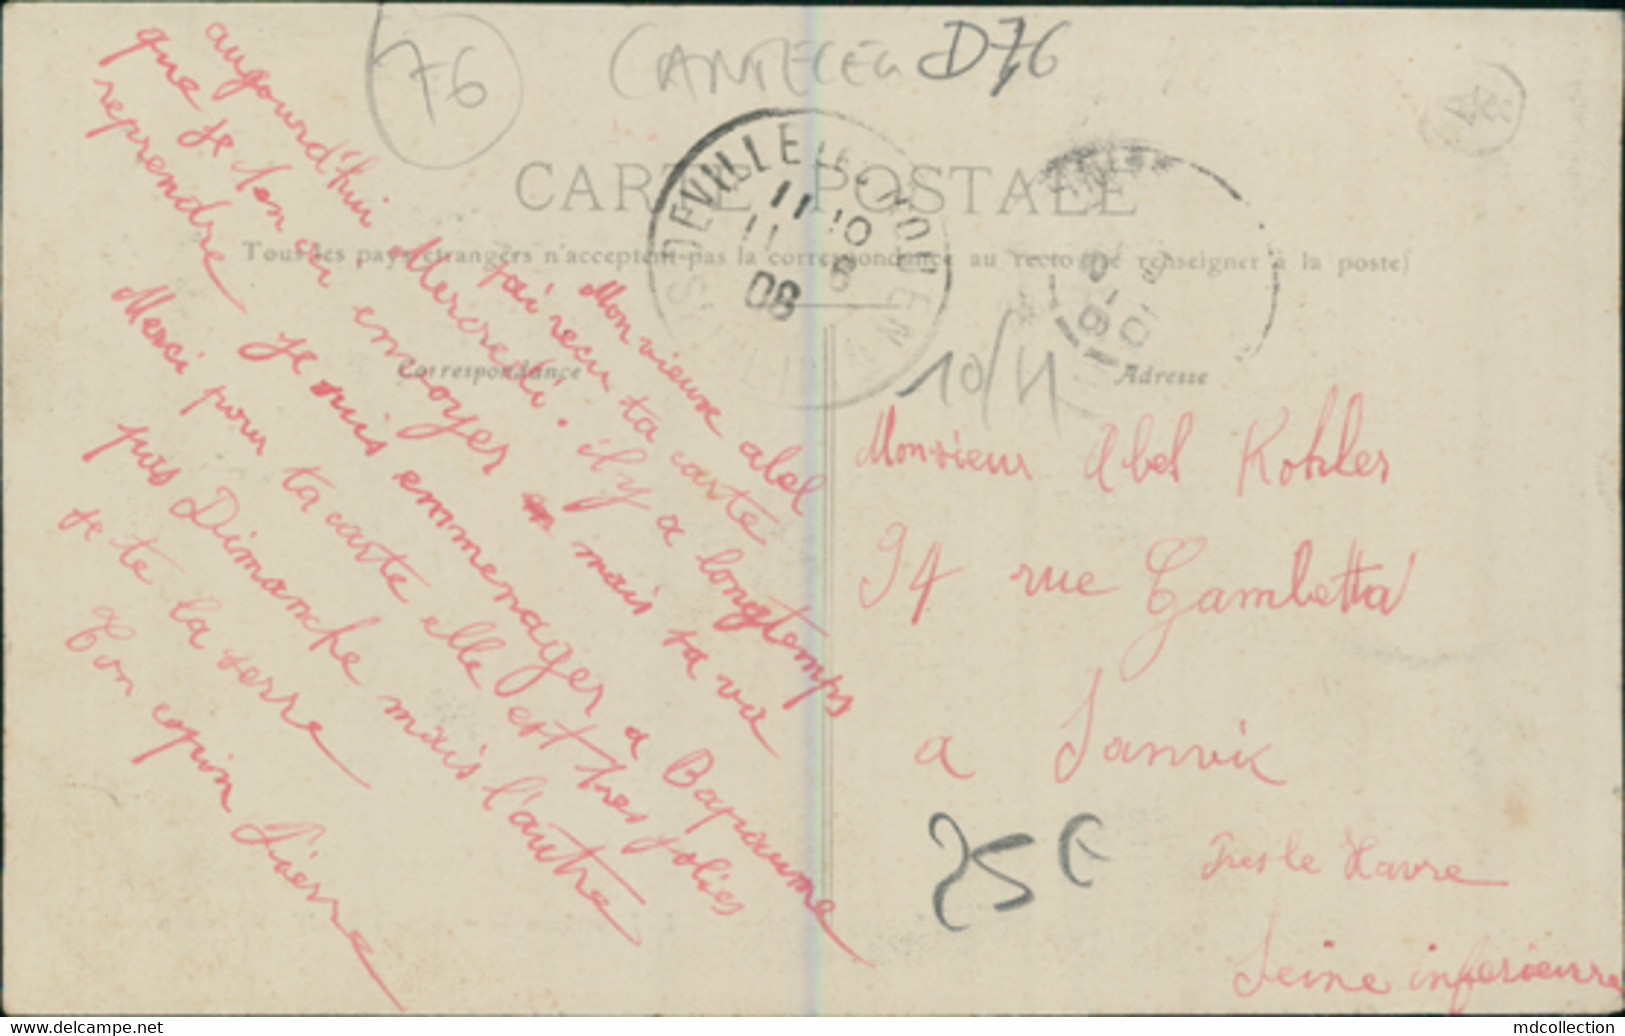 76
CANTELEU D76
CARTE POSTALE
Tous les pays étrangers n'acceptent pas la correspondance au recto (se renseigner à la poste)
DEVILLE-LES-ROUEN
11 10
11 8
08
Correspondance
Adresse
10/4
Mon vieux abel
j'ai recu ta carte
aujourd'hui Mercredi. il y a longtemps
que je t'en ai envoyer mais sa va
reprendre je suis emmenager a Bapaume
Merci pour ta carte elle est tres jolies
puis Dimanche mais l'autre
je te la serre
Ton copin Pierre
Monsieur Abel Kohler
94 rue Gambetta
a Sanvic
Pres le Havre
Seine inferieure
25€
mdcollection